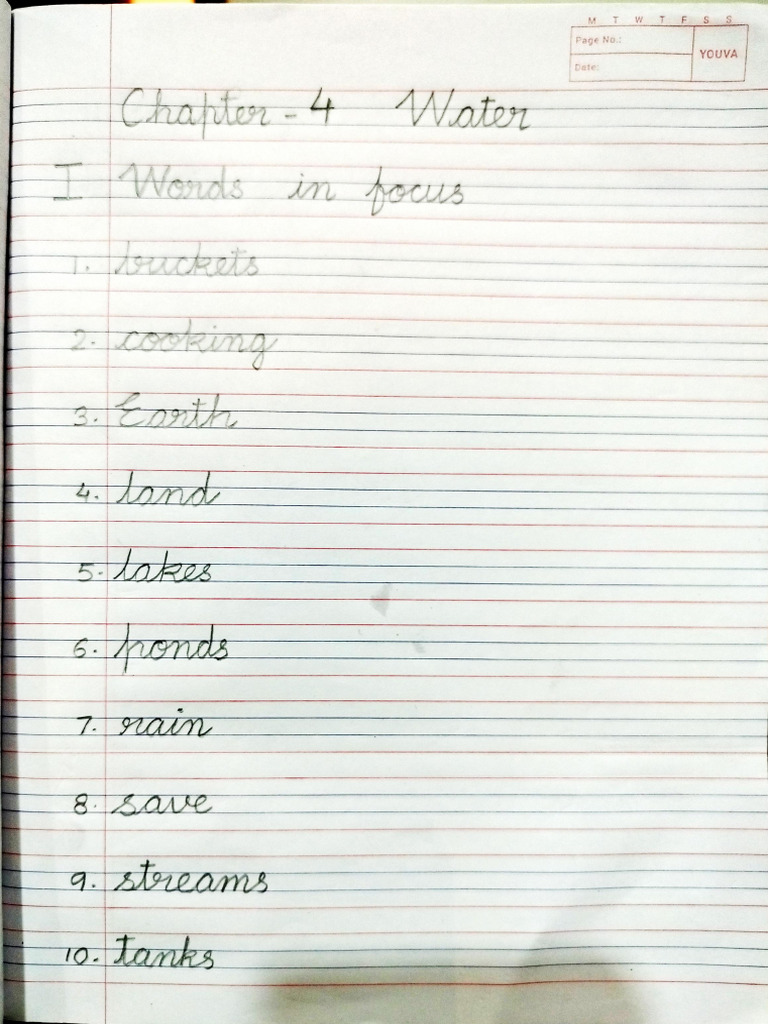 M T W T F S S
Page No.:
YOUVA
Date:
Chapter - 4 Water
I Words in focus
1. buckets
2. cooking
3. Earth
4. land
5. lakes
6. ponds
7. rain
8. save
9. streams
10. tanks